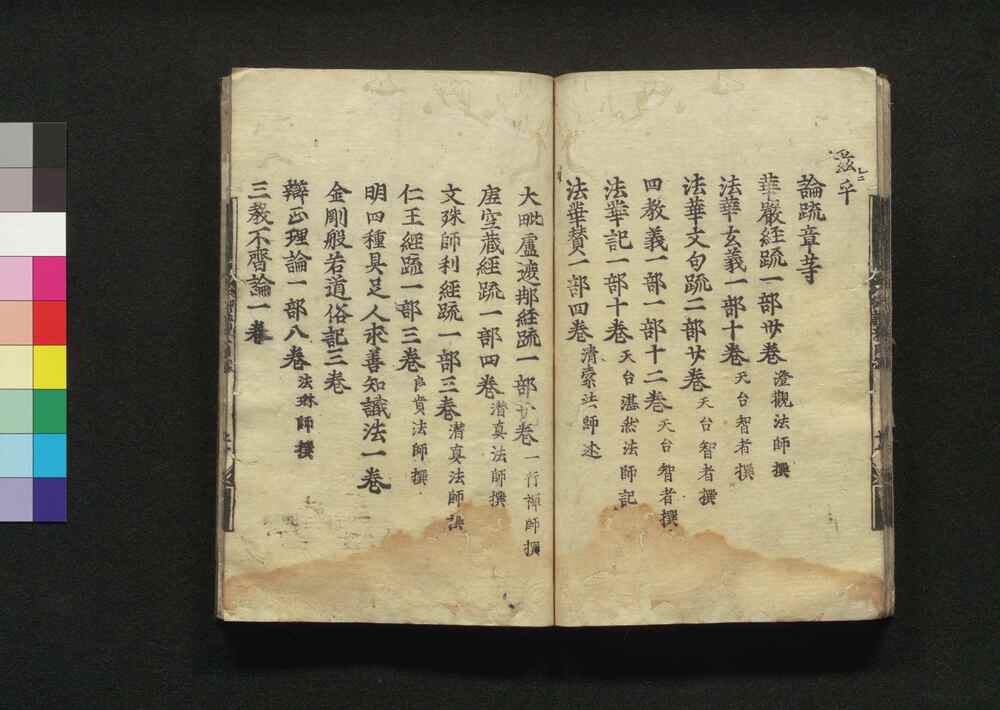 論疏章等
華嚴経疏一部卅卷 澄觀法師撰
法華玄義一部十卷 天台智者撰
法華文句疏二部廿卷 天台智者撰
四教義一部一部十二卷 天台智者撰
法華記一部十卷 天台湛然法師記
法華賛一部四卷 清素法師述
大毗盧遮那経疏一部廿卷 一行禅師撰
虗空蔵経疏一部四卷 潜真法師撰
文殊師利経疏一部三卷 潜真法師撰
仁王経疏一部三卷 良賁法師撰
明四種具足人求善知識法一卷
金剛般若道俗記三卷
辯正理論一部八卷 法琳師撰
三教不齊論一卷